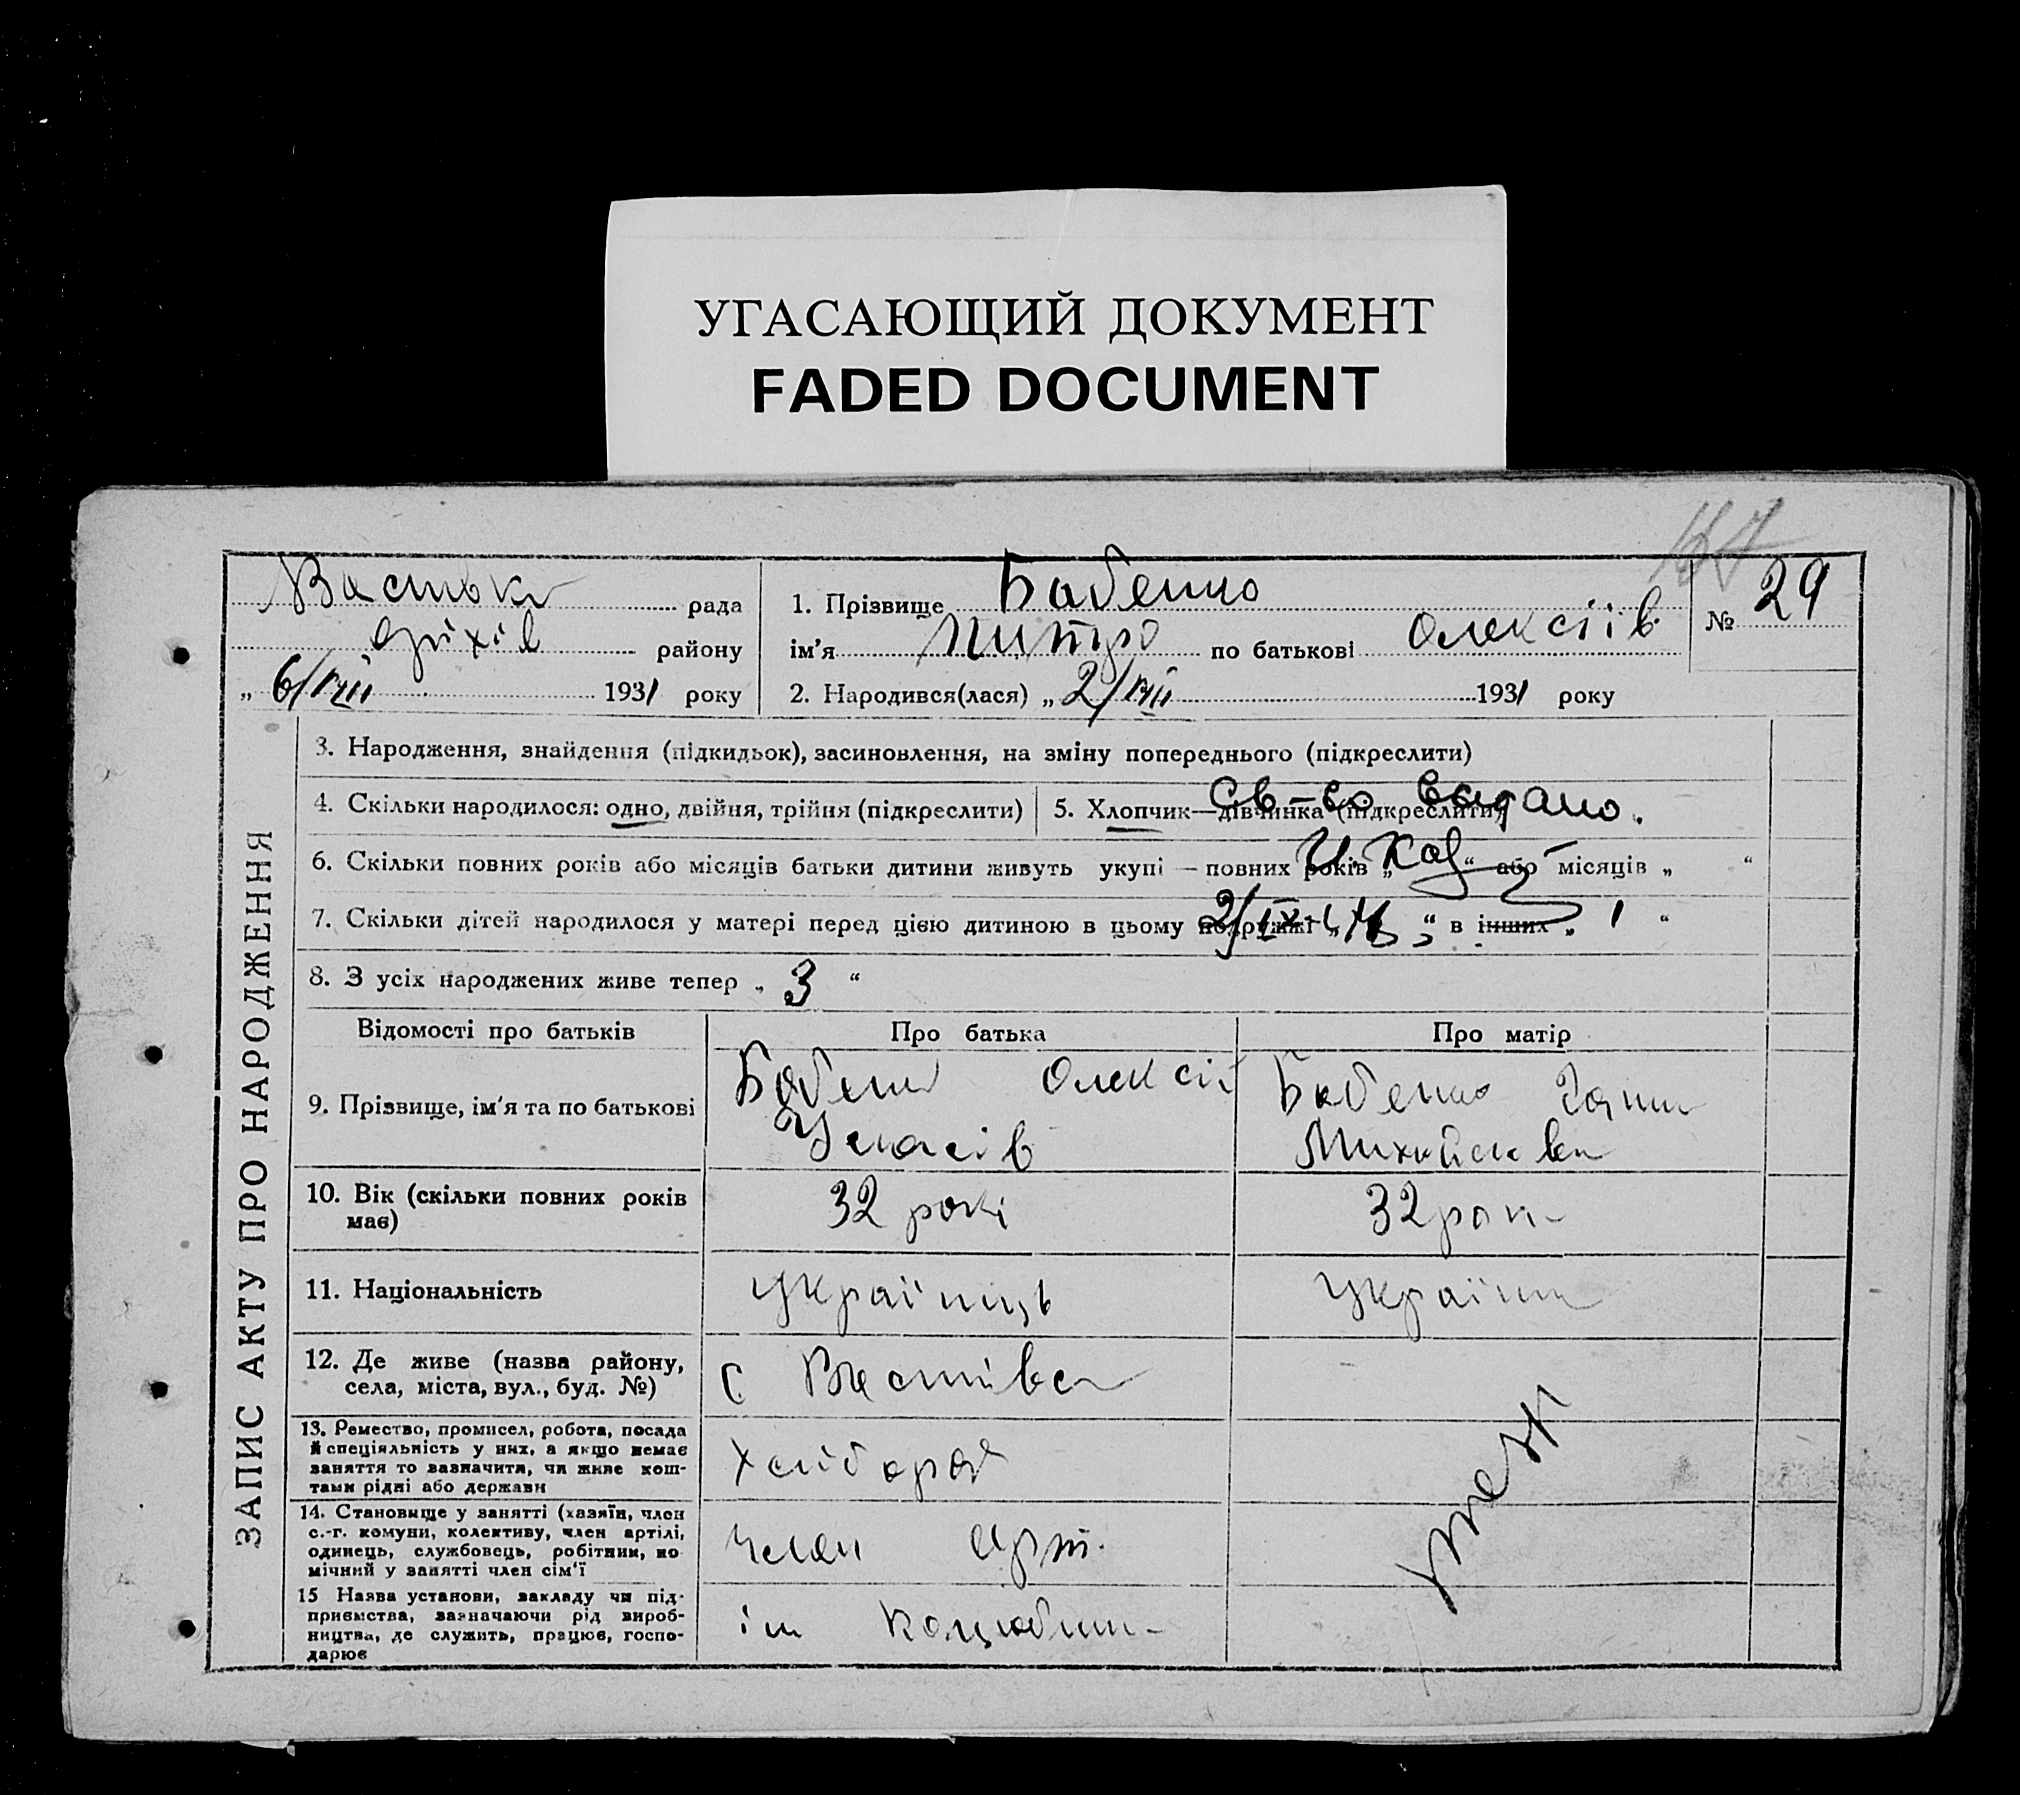 УГАСАЮЩИЙ ДОКУМЕНТ
FADED DOCUMENT
рада
району
„ 6/VIII 1931 року
1. Прізвище Бабенко
ім'я по батькові Олексіїв
2. Народився(лася) „ 2/VIII 1931 року
№ 29
ЗАПИС АКТУ ПРО НАРОДЖЕННЯ
3. Народження, знайдення (підкидьок), засиновлення, на зміну попереднього (підкреслити)
4. Скільки народилося: одно, двійня, трійня (підкреслити)
5. Хлопчик—дівчинка (підкреслити)
Св-во выдано.
6. Скільки повних років або місяців батьки дитини живуть укупі — повних років „ “ або місяців „ “
7. Скільки дітей народилося у матері перед цією дитиною в цьому подружжі „ “ в інших „ “
8. З усіх народжених живе тепер „ 3 “
Відомості про батьків
Про батька
Про матір
9. Прізвище, ім'я та по батькові
Олексій
Бабенко
10. Вік (скільки повних років
має)
32 рокі
32 рок
11. Національність
Українець
Українка
12. Де живе (назва району,
села, міста, вул., буд. №)
с
13. Ремество, промисел, робота, посада
й спеціяльність у них, а якщо немає
заняття то зазначити, чи живе кош-
тами рідні або держави
Хлібороб
14. Становище у занятті (хазяїн, член
с.-г. комуни, колективу, член артілі,
одинець, службовець, робітник, по-
мічний у занятті член сім'ї
Член Арт.
15 Назва установи, закладу чи під-
приємства, зазначаючи рід вироб-
ництва, де служить, працює, госпо-
дарює
ім Коцюбин